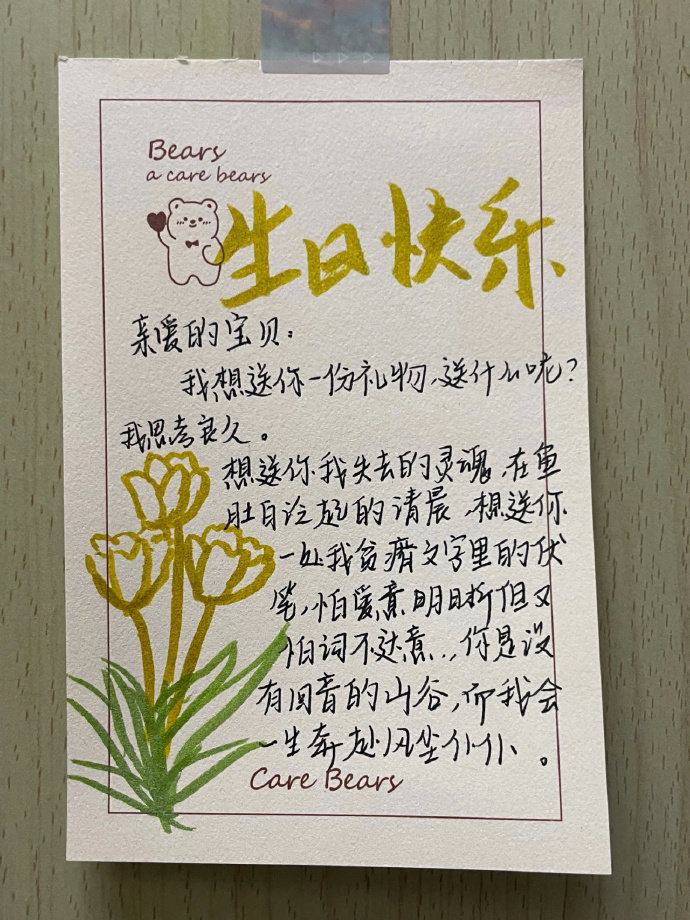 Bears
a care bears
生日快乐
亲爱的宝贝：
我想送你一份礼物，送什么呢？
我思考良久。
想送你我失去的灵魂，在鱼
肚白泛起的清晨，想送你
一处我贫瘠文字里的伏
笔，怕爱意明目晰但又
怕词不达意，，你是没
有回音的山谷，而我会
一生奔赴风尘仆仆。
Care Bears